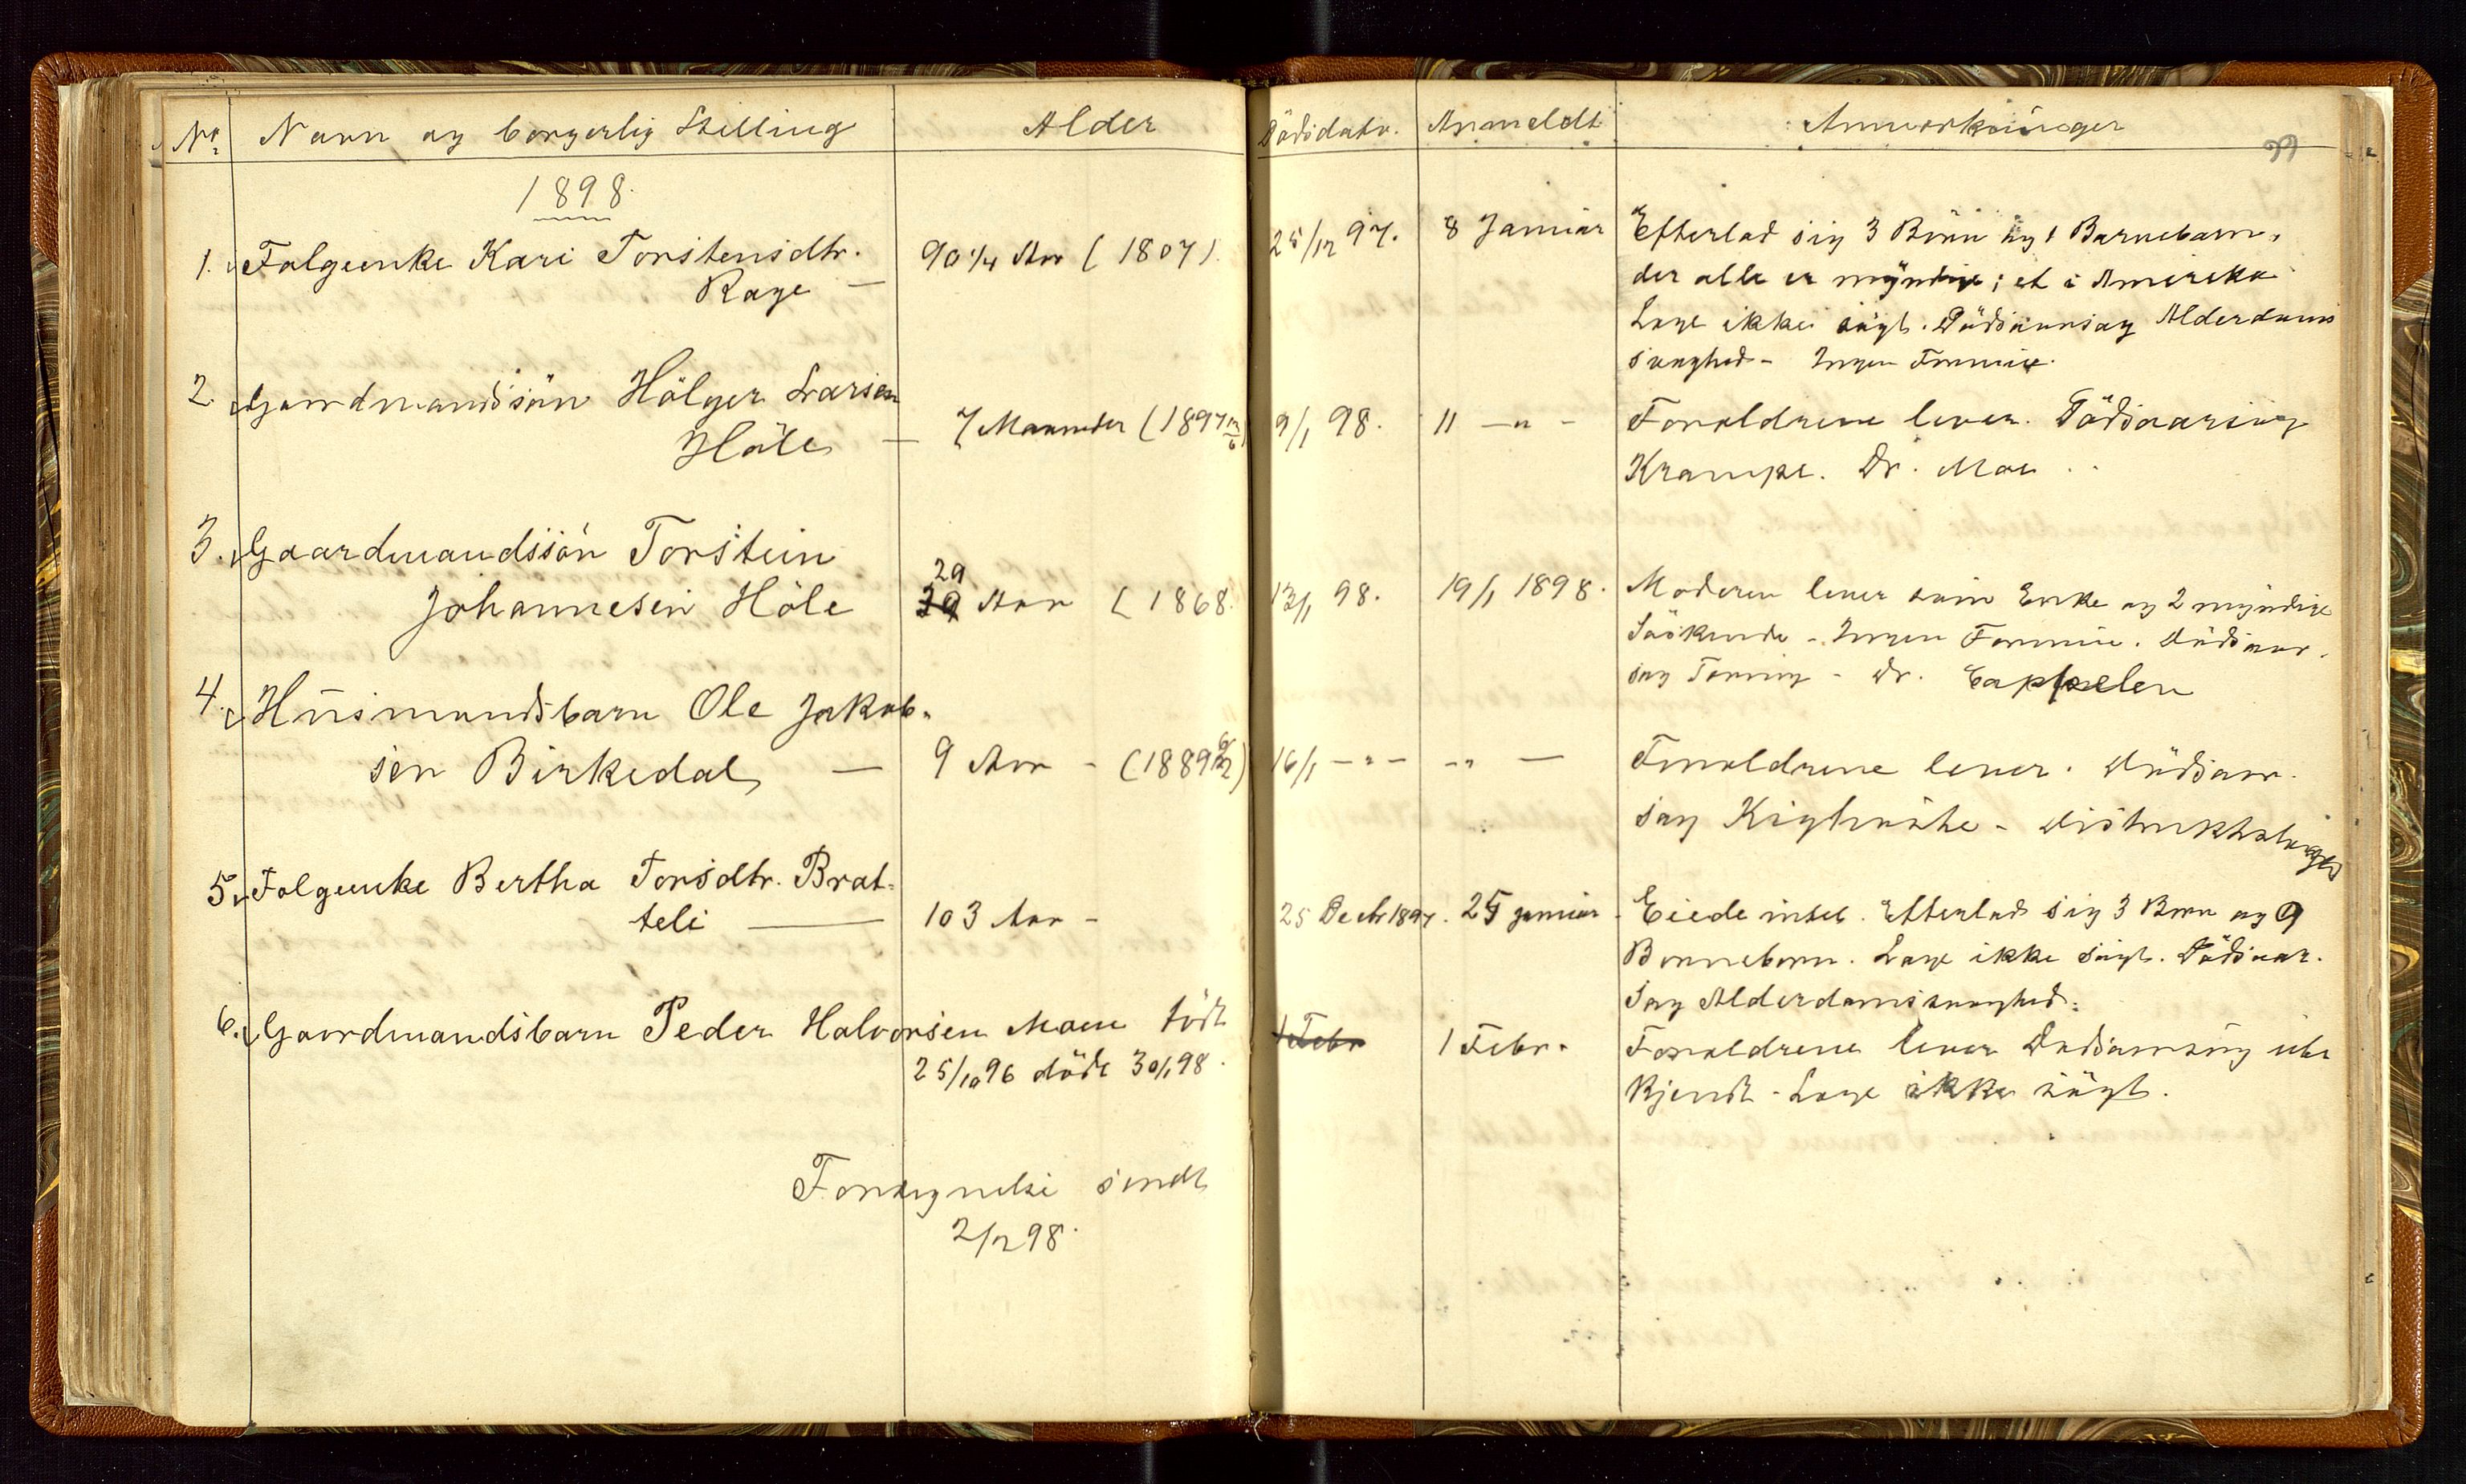 No. Navn og borgerlig Stilling Alder Dödsdato. Anmeldt Anmerkninger
1898.
1. Folgeenke Kari Torstensdtr. 90 1/4 Aar (1807) 25/12 97. 8 Januar Efterlod sig 3 Börn og 1 Barnebarn,
Rage — der alle er myndige; et i Amerika
Læge ikke sögt. Dödsaarsag Alderdoms
svaghed - Ingen Formue.
2. Gaardmandssön Hölger Larsen
Höle — 7 Maaneder (1897 12/6) 9/1 98. 11 — " - Forældrene lever. Dödsaarsag
Krampe. Dr. Moe
3. Gaardmandssön Torstein
Johannesen Höle 29 Aar (1868. 13/1 98. 19/1 1898. Moderen lever som Enke og 2 myndige
Söskende - Ingen Formue. Dödsaar-
sag Tæring - Dr. Cappelen
4. Husmandsbarn Ole Jakob-
sen Birkedal — 9 Aar - (1889) 16/1 — " - - " — Forældrene lever. Dödsaar-
sag Kighoste - Distriktslægen
5. Folgeenke Bertha Torsdtr. Brat-
teli — 103 Aar - 25 Decbr 1897. 25 januar - Eiede intet. Efterlod sig 3 Börn og 9
Börnebörn. Læge ikke sögt. Dödsaar-
sag Alderdomssvaghed.
6. Gaardmandsbarn Peder Halvorsen Moen födt 1 Febr 1 Febr. Forældrene lever Dödsaarsag ube
25/10 96 död 30/1 98. kjendt - Læge ikke sögt.
Fortegnelse sendt
2/2 98.